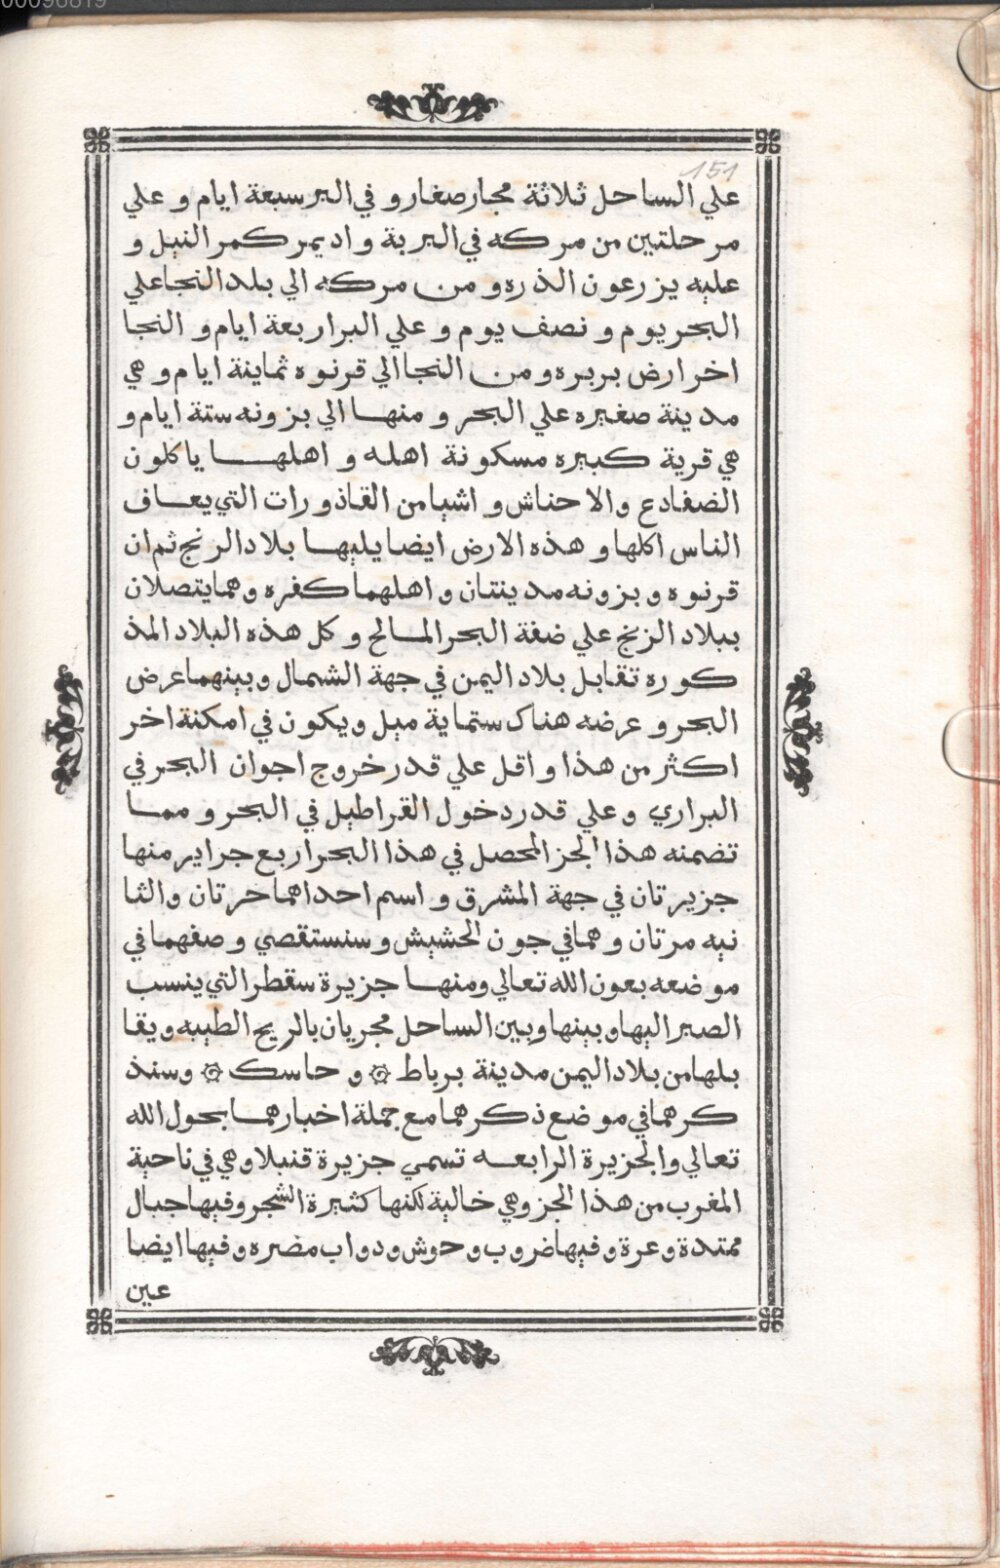 00096819
151
علي الساحل ثلاثة مجار صغار و في البر سبعة ايام و علي
مرحلتين من مركه في البرية واد يمر كمر النيل و
عليه يزرعون الذره و من مركه الي بلد النجا علي
البحر يوم و نصف يوم و علي البر اربعة ايام و النجا
اخر ارض بربره و من النجا الي قرنوه ثماينة ايام و هي
مدينة صغيره علي البحر و منها الي بزونه ستة ايام و
هي قرية كبيره مسكونة اهله و اهلها ياكلون
الضفادع والاحناش و اشيا من القاذورات التي يعاف
الناس اكلها و هذه الارض ايضا يليها بلاد الرنج ثم ان
قرنوه و بزونه مدينتان و اهلهما كفره و هما يتصلان
ببلاد الزنج علي ضفة البحر المالح و كل هذه البلاد المذ
كوره تقابل بلاد اليمن في جهة الشمال و بينهما عرض
البحر و عرضه هناك ستماية ميل ويكون في امكنة اخر
اكثر من هذا و اقل علي قدر خروج اجوان البحر في
البراري و علي قدر دخول القراطيل في البحر و مما
تضمنه هذا الجز المحصل في هذا البحر اربع جراير منها
جزيرتان في جهة المشرق و اسم احداهما خرتان والثا
نيه مرتان و هما في جون الحشيش و سنستقصي وصفهما في
موضعه بعون الله تعالي ومنها جزيرة سقطر التي ينسب
الصبر اليها و بينها وبين الساحل مجريان بالريح الطيبه و يقا
بلها من بلاد اليمن مدينة برباط ۞ و حاسك ۞ وسنذ
كرهما في موضع ذكرهما مع جملة اخبارهما بحول الله
تعالي والجزيرة الرابعه تسمي جزيرة قنبلا وهي في ناحية
المغرب من هذا الجز وهي خالية لكنها كثيرة الشجر وفيها جبال
ممتدة وعرة و فيها ضروب وحوش ودواب مضره وفيها ايضا
عين